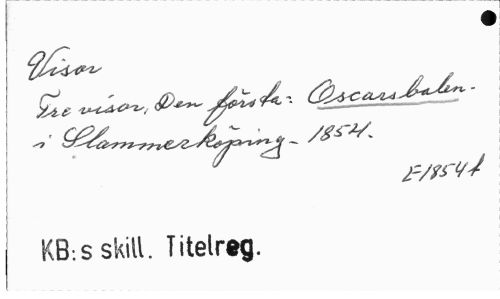 Visor
Tre visor, Den första: Oscarsbalen.
i Slammerköping - 1854.
E1854 f
KB:s skill. Titelreg.